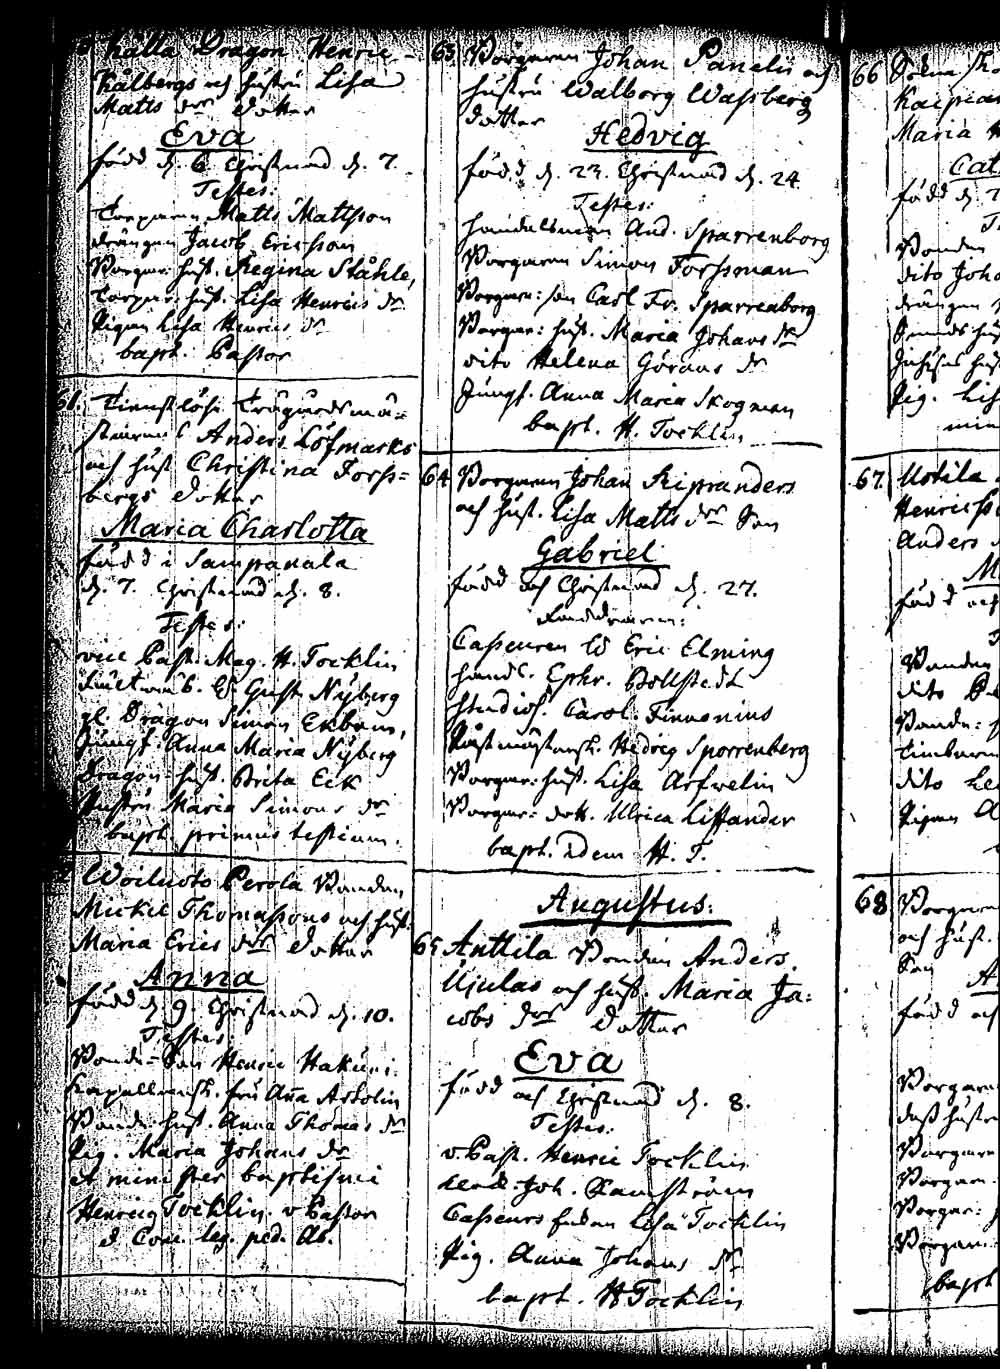 Källa Dragon Henric
Kålbergs och hustru Lisa
Matts dr dotter
Eva
född d. 6. Christnad d. 7.
Testes:
Torparen Matts Mattsson
drängen Jacob Ericsson
Borgar: hust. Regina Ståhle,
Torpar: hust. Lisa Henrics dr
Pigan Lisa Henrics dr
bapt. Pastor
61. Tienstlöse Trägårdsmä-
starens Anders Löfmarks
och hust Christina Forss-
bergs dotter
Maria Charlotta
född i Sampanala
d. 7. Christnad d. 8.
Testes:
vice Past. Mag. H. Tocklin
W. Gust Nyberg
gl. Dragon Simon Ekbom,
Jungf. Anna Maria Nyberg
Dragon hust. Brita Eck
Hustru Maria Simons dr
bapt. primus testium.
Woiluoto Perola Bonden
Mickel Thomassons och hust.
Maria Erics dr dotter
Anna
född d. 9. Christnad d. 10.
Testes
Bonde-Son Henric Hakuni
Kapellansk. fru Anna Artolin
Bonde hust. Anna Thomas dr
Pig. Maria Johans dr
et minister baptismi
Henric Tocklin. v Pastor
63. Borgaren Johan Panelii och
hustru Walborg Wassberg
dotter
Hedvig
född d. 23. Christnad d. 24.
Testes:
handelsman And. Sparrenborg
Borgaren Simon Forssman
Borgare: son Carl Fr. Sparrenborg
Borgar: hust. Maria Johans dr
dito Helena Görans dr
Jungf. Anna Maria Skogman
bapt. H. Tocklin
64 Borgaren Johan Kipranders
och hust. Lisa Matts dr Son
Gabriel
född och Christnad d. 27.
Fadderar:
Casseuren W Eric Elming
handl. Ephr. Bollstedt
studios. Carol. Finnonius
Hedvig Sporrenberg
Borgar: hust. Lisa Arfwelin
Borgar: dott. Ulrica Lissander
bapt. idem H. T.
Augustus:
65 Anttila Bonden Anders
Ujulas och hust. Maria Ja:
cobs dr dotter
Eva
född och Christnad d. 8.
Testes:
v. Past. Henric Tocklin
Joh. Ramström
Casseurs Lisa Tocklin
Pig. Anna Johans dr
bapt. H Tocklin
66
Maria
född d.
Bonden
dito Joha
drängen
Pig. Lis
67. Uotila
Henricsso
Anders
född och
Bonden
dito
Bonde:
dito
Pigan
68 Borgaren
och hust.
Son
född och
Borgaren
Borgaren
Borgare
Borgar:
bapt